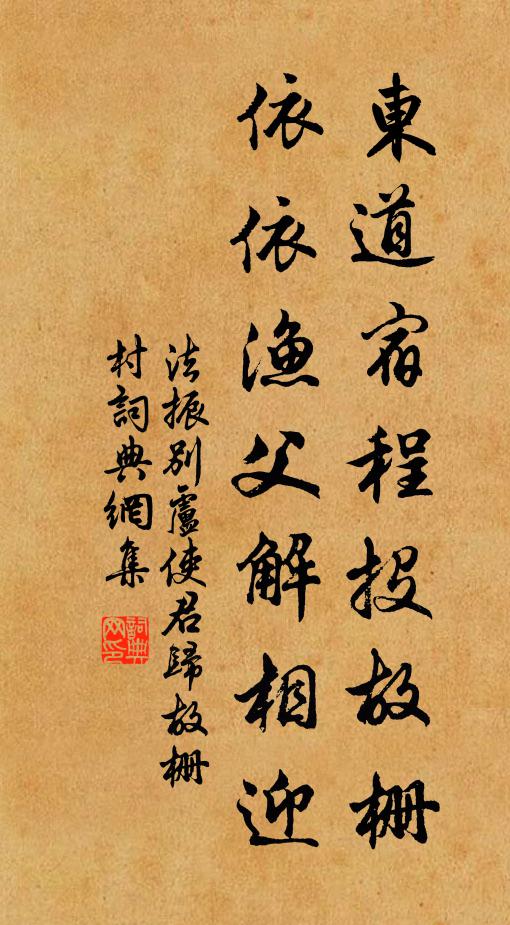 東道宿程投故柵
依依漁父解相迎
法振別盧使君歸故柵
村詞典網集
詞典網印